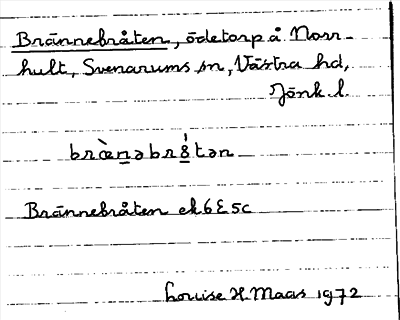 Brännebråten, ödetorp å Norr-
hult, Svenarums sn, Västra hd,
Jönk. l.
bræ̀nəbr8́tən
Brännebråten ek 6E5c
Louise H. Maas 1972